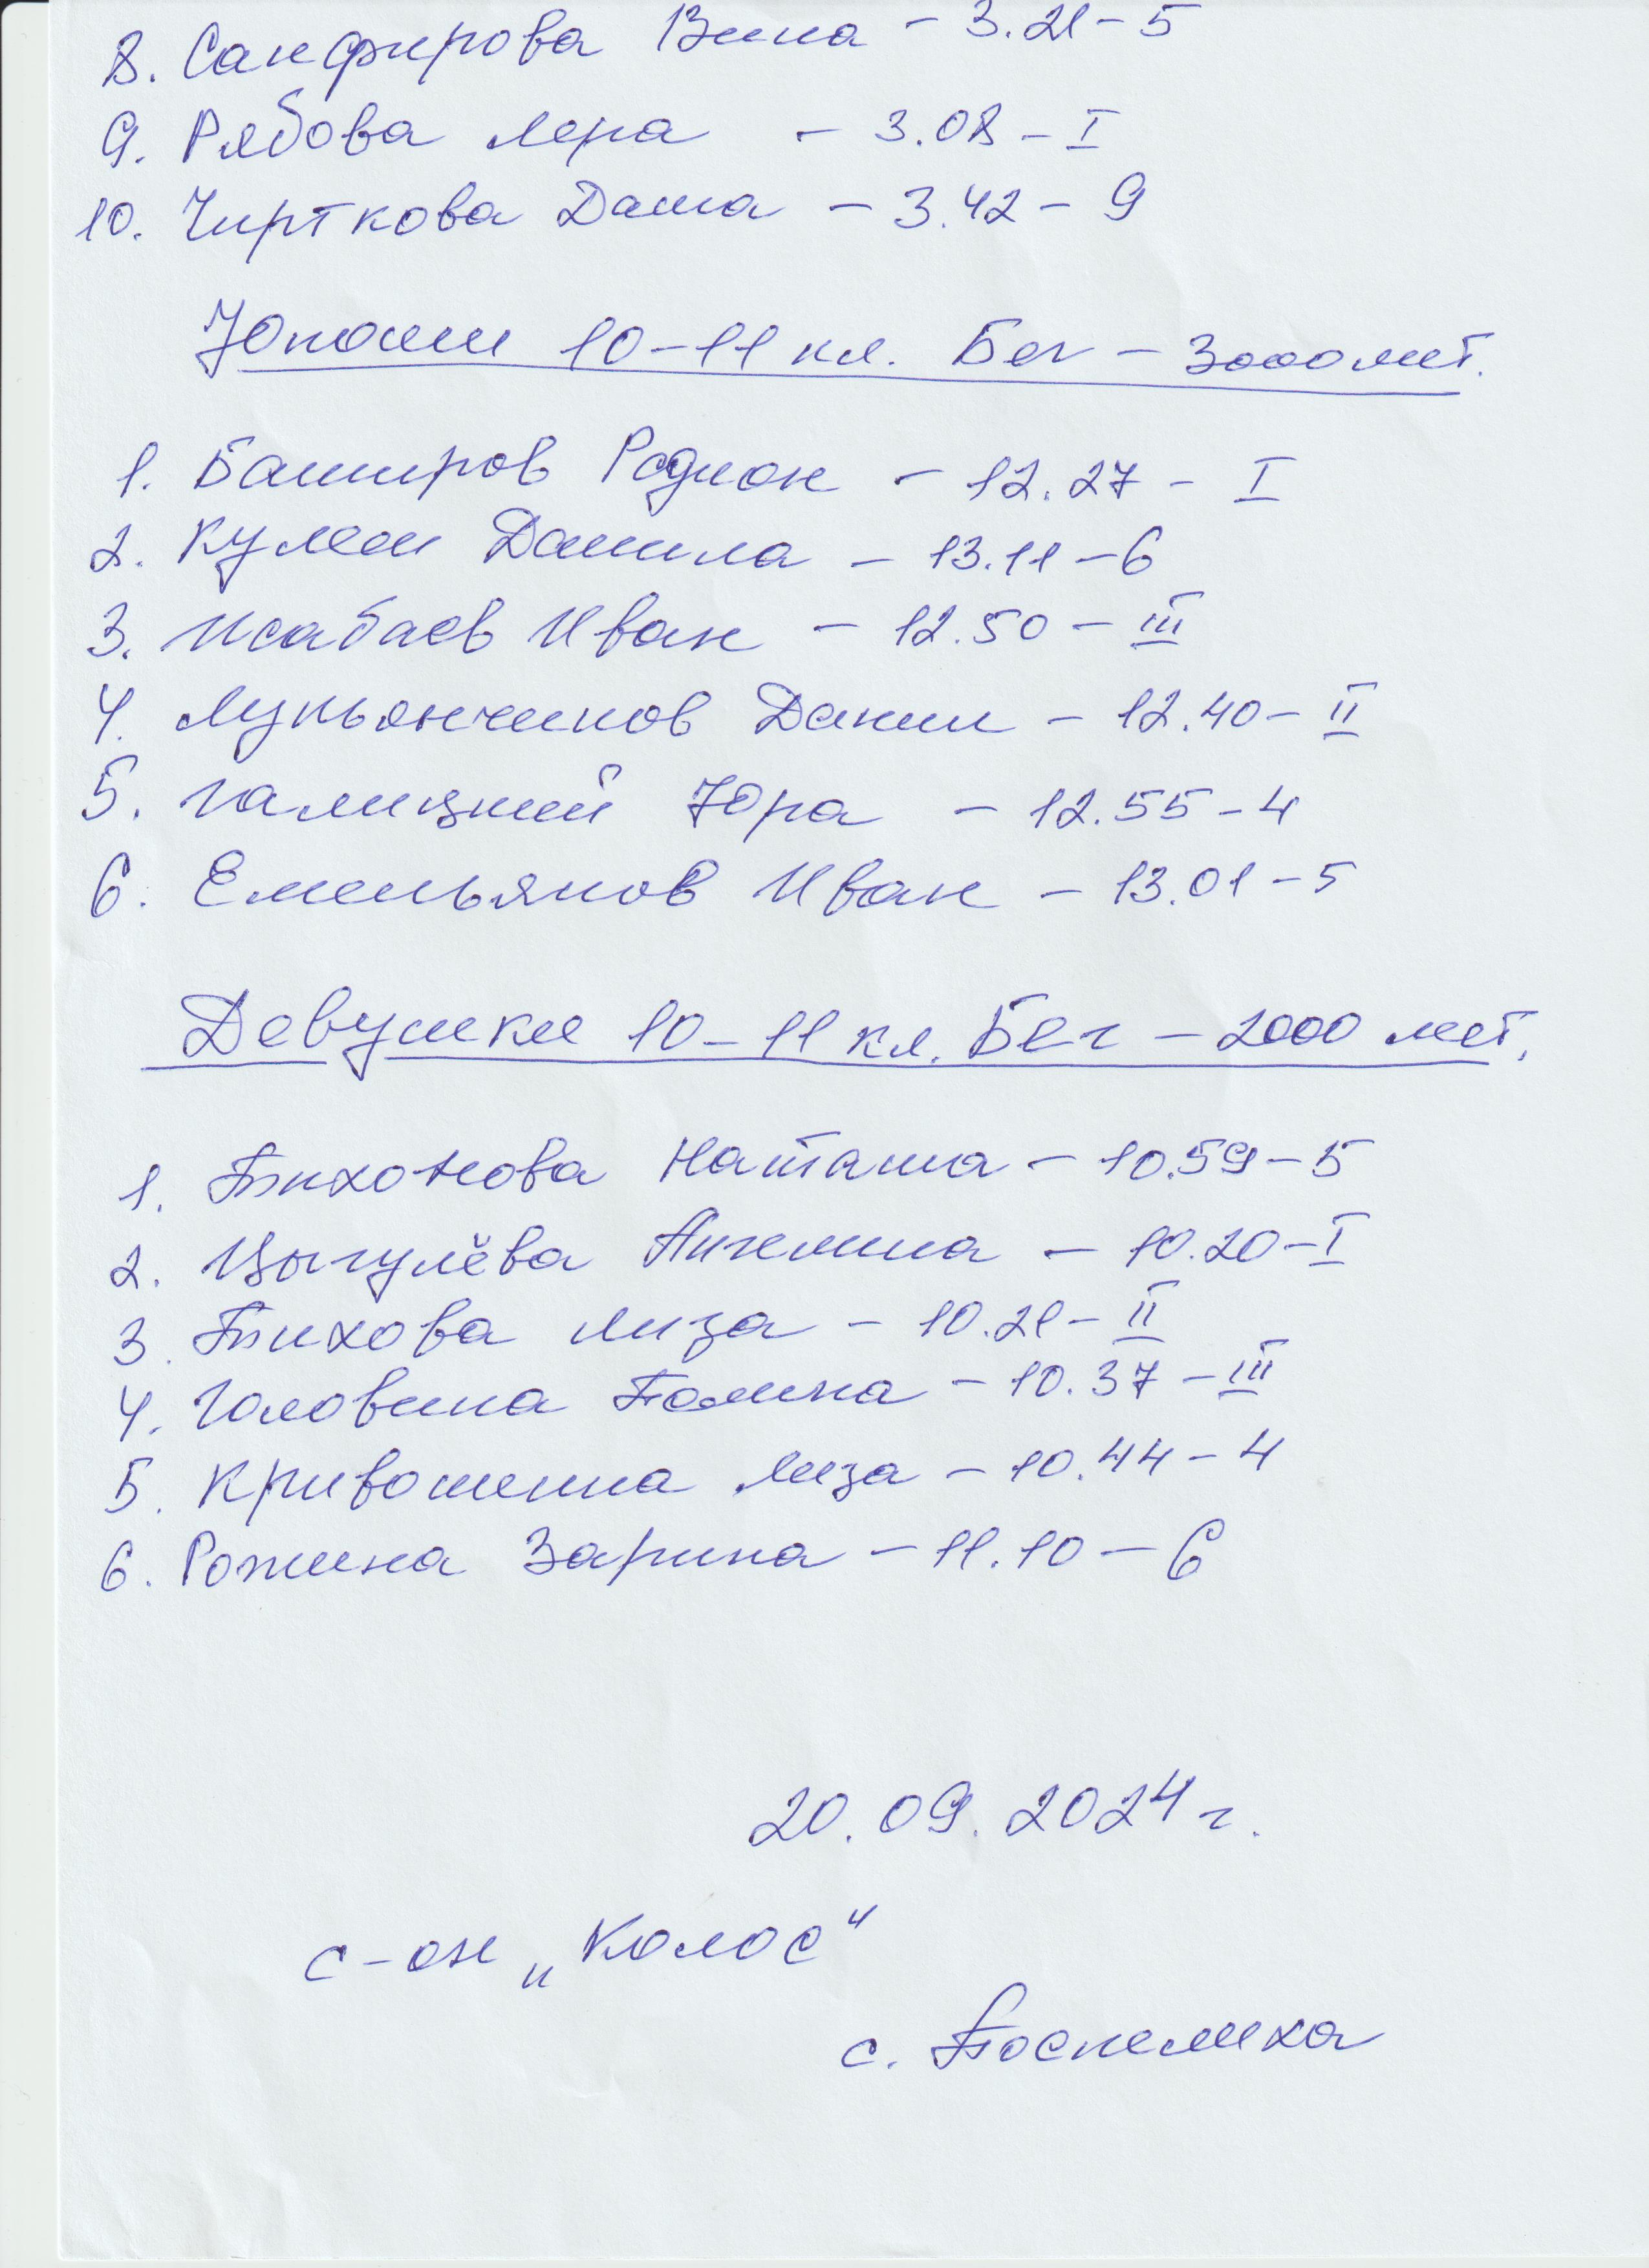 8. Санфирова Вика - 3.21 - 5
9. Рябова Лера - 3.08 - I
10. Чирткова Даша - 3.42 - 9
Юноши 10-11 кл. Бег - 3000 мет.
1. Баширов Родион - 12.27 - I
2. Кулеш Данила - 13.11 - 6
3. Исабаев Иван - 12.50 - III
4. Лукьянчиков Данил - 12.40 - II
5. Галицкий Юра - 12.55 - 4
6. Емельянов Иван - 13.01 - 5
Девушки 10-11 кл. Бег - 2000 мет.
1. Тихонова Наташа - 10.59 - 5
2. Цыгулёва Ангелина - 10.20 - I
3. Пихова Лиза - 10.21 - II
4. Головина Полина - 10.37 - III
5. Кривошеина Лиза - 10.44 - 4
6. Рожина Зарина - 11.10 - 6
20.09.2024 г.
с-он „Колос“
с. Поспелиха